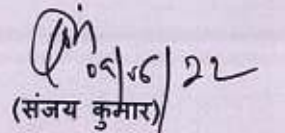 09/06/22
(संजय कुमार)